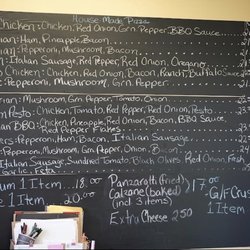 House Made Pizza
Chicken: Chicken, Red Onion, Grn Pepper, BBQ Sauce
: Ham, Pineapple, Bacon
: Pepperoni, Mushroom, Bacon
: Italian Sausage, Red Pepper, Red Onion, Oregano
Chicken: Chicken, Red Onion, Bacon, Ranch, Buffalo Sauce
: Pepperoni, Mushroom, Grn. Pepper, Bacon, Ham
: Mushroom, Grn Pepper, Tomato, Onion
Pesto: Chicken, Tomato, Red Pepper, Red Onion, Pesto
: BBQ Chicken, Pineapple, Red Onion, Bacon, BBQ Sauce
Red Pepper Flakes
: Pepperoni, Ham, Bacon, Italian Sausage
: Pepperoni, Mushroom, Grn Pepper, Bacon, Onion
Italian Sausage, Sundried Tomato, Black Olives, Red Onion, Fresh
Garlic, Feta
1 Item 18.00
1 Item 20.00
Panzarotti (fried)
Calzone (baked)
(incl 3 items)
17.00
Extra Cheese 2.50
G/F Crust
1 Item